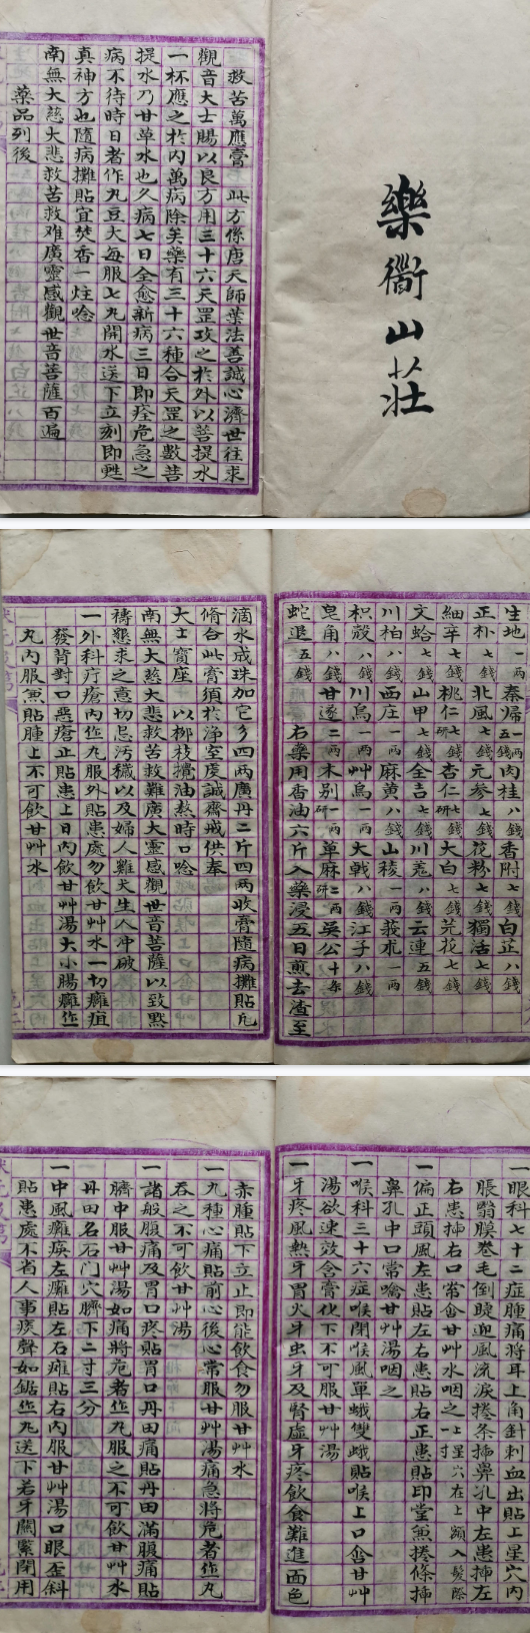 樂衢山莊
救苦萬應膏 此方係唐天師葉法善誠心濟世往求
觀音大士賜以良方用三十六天罡攻之於外以菩提水
一杯應之於內萬病除矣藥有三十六種合天罡之數菩
提水乃甘草水也久病七日全愈新病三日即痊危急之
病不待時日者作丸豆大每服七丸開水送下立刻即甦
真神方也隨病攤貼宜焚香一炷唸
南無大慈大悲救苦救难廣靈感觀世音菩薩百遍
藥品列後
生地一两 秦歸一两五錢 肉桂八錢 香附七錢 白芷八錢
正朴七錢 北風七錢 元参七錢 花粉七錢 獨活七錢
細辛七錢 桃仁研七錢 杏仁研七錢 大白七錢 芫花七錢
文蛤七錢 山甲七錢 全吉七錢 川羗八錢 云連五錢
川柏八錢 西庄一两 麻黄八錢 山稜一两 莪朮一两
枳殼八錢 川烏一两 艸烏一两 大戟八錢 江子八錢
皂角八錢 甘遂二两 木别研一两 草麻研二两 吳公十条
蛇退五錢 右藥用香油六斤入藥浸五日煎去渣至
滴水成珠加它夛四两廣丹二斤四两收膏隨病攤貼凢
脩合此膏須於淨室虔誠齋戒供奉
大士寶座 以柳枝攪油熬時口唸
南無大慈大悲救苦救難廣大靈感觀世音菩薩以致默
禱懇求之意切忌汚穢以及婦人雞犬生人冲破
一外科疔瘡内作丸服外貼患處勿飲甘艸水一切癰疽
發背對口惡瘡正貼患上日内飲甘艸湯大小腸癰作
丸内服兼貼腫上不可飲甘艸水
一眼科七十二症腫痛將耳上角針刺血出貼上星穴内
脹翳膜巻毛倒睫迎風流淚捲条揷鼻孔中左患揷左
右患揷右口常含甘艸水咽之上星穴在上額入髮際一寸
一偏正頭風左患貼左右患貼右正患貼印堂兼捲條揷
鼻孔中口常噙甘艸湯咽之
一喉科三十六症喉閉喉風單蛾雙蛾貼喉上口含甘艸
湯欲速效含膏化下不可服甘艸湯
一牙疼風熱牙胃火牙虫牙及腎虛牙疼飲食難進面色
赤腫貼下立止即能飲食勿服甘艸水
一九種心痛貼前心後心常服甘艸湯痛急將危者作丸
吞之不可飲甘艸湯
一諸般腹痛及胃口疼貼胃口丹田痛貼丹田滿腹痛貼
臍中服甘艸湯如痛將危者作丸服之不可飲甘艸水
丹田名石門穴臍下二寸三分
一中風癱痪左癱貼左右瘫貼右内服甘艸湯口眼歪斜
貼患處不省人事痰聲如鋸作丸送下若牙關緊閉用